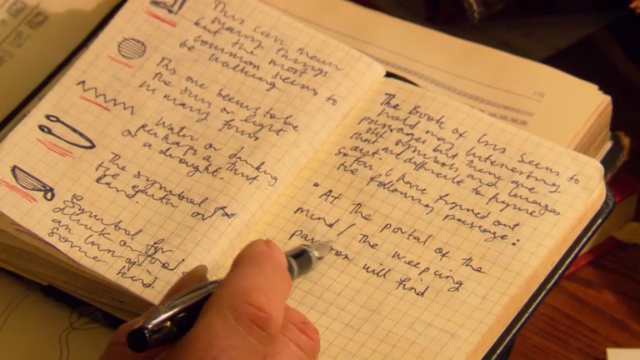 This can mean
many things
but the most
common seems to
be walking
This one seems to be
the sun or light
in many forms
Water or drinking
perhaps a thirst
or a drought
The symbol for
the eater or
Symbol for
drink or food
an inn of
some kind.
The Book of Ins seem to
hold many interesting
passages but
the symbols and images
that are difficult to figure
out. I have figured out
so far
the following passage:
"At the portal of the
mind! The weeping
will find